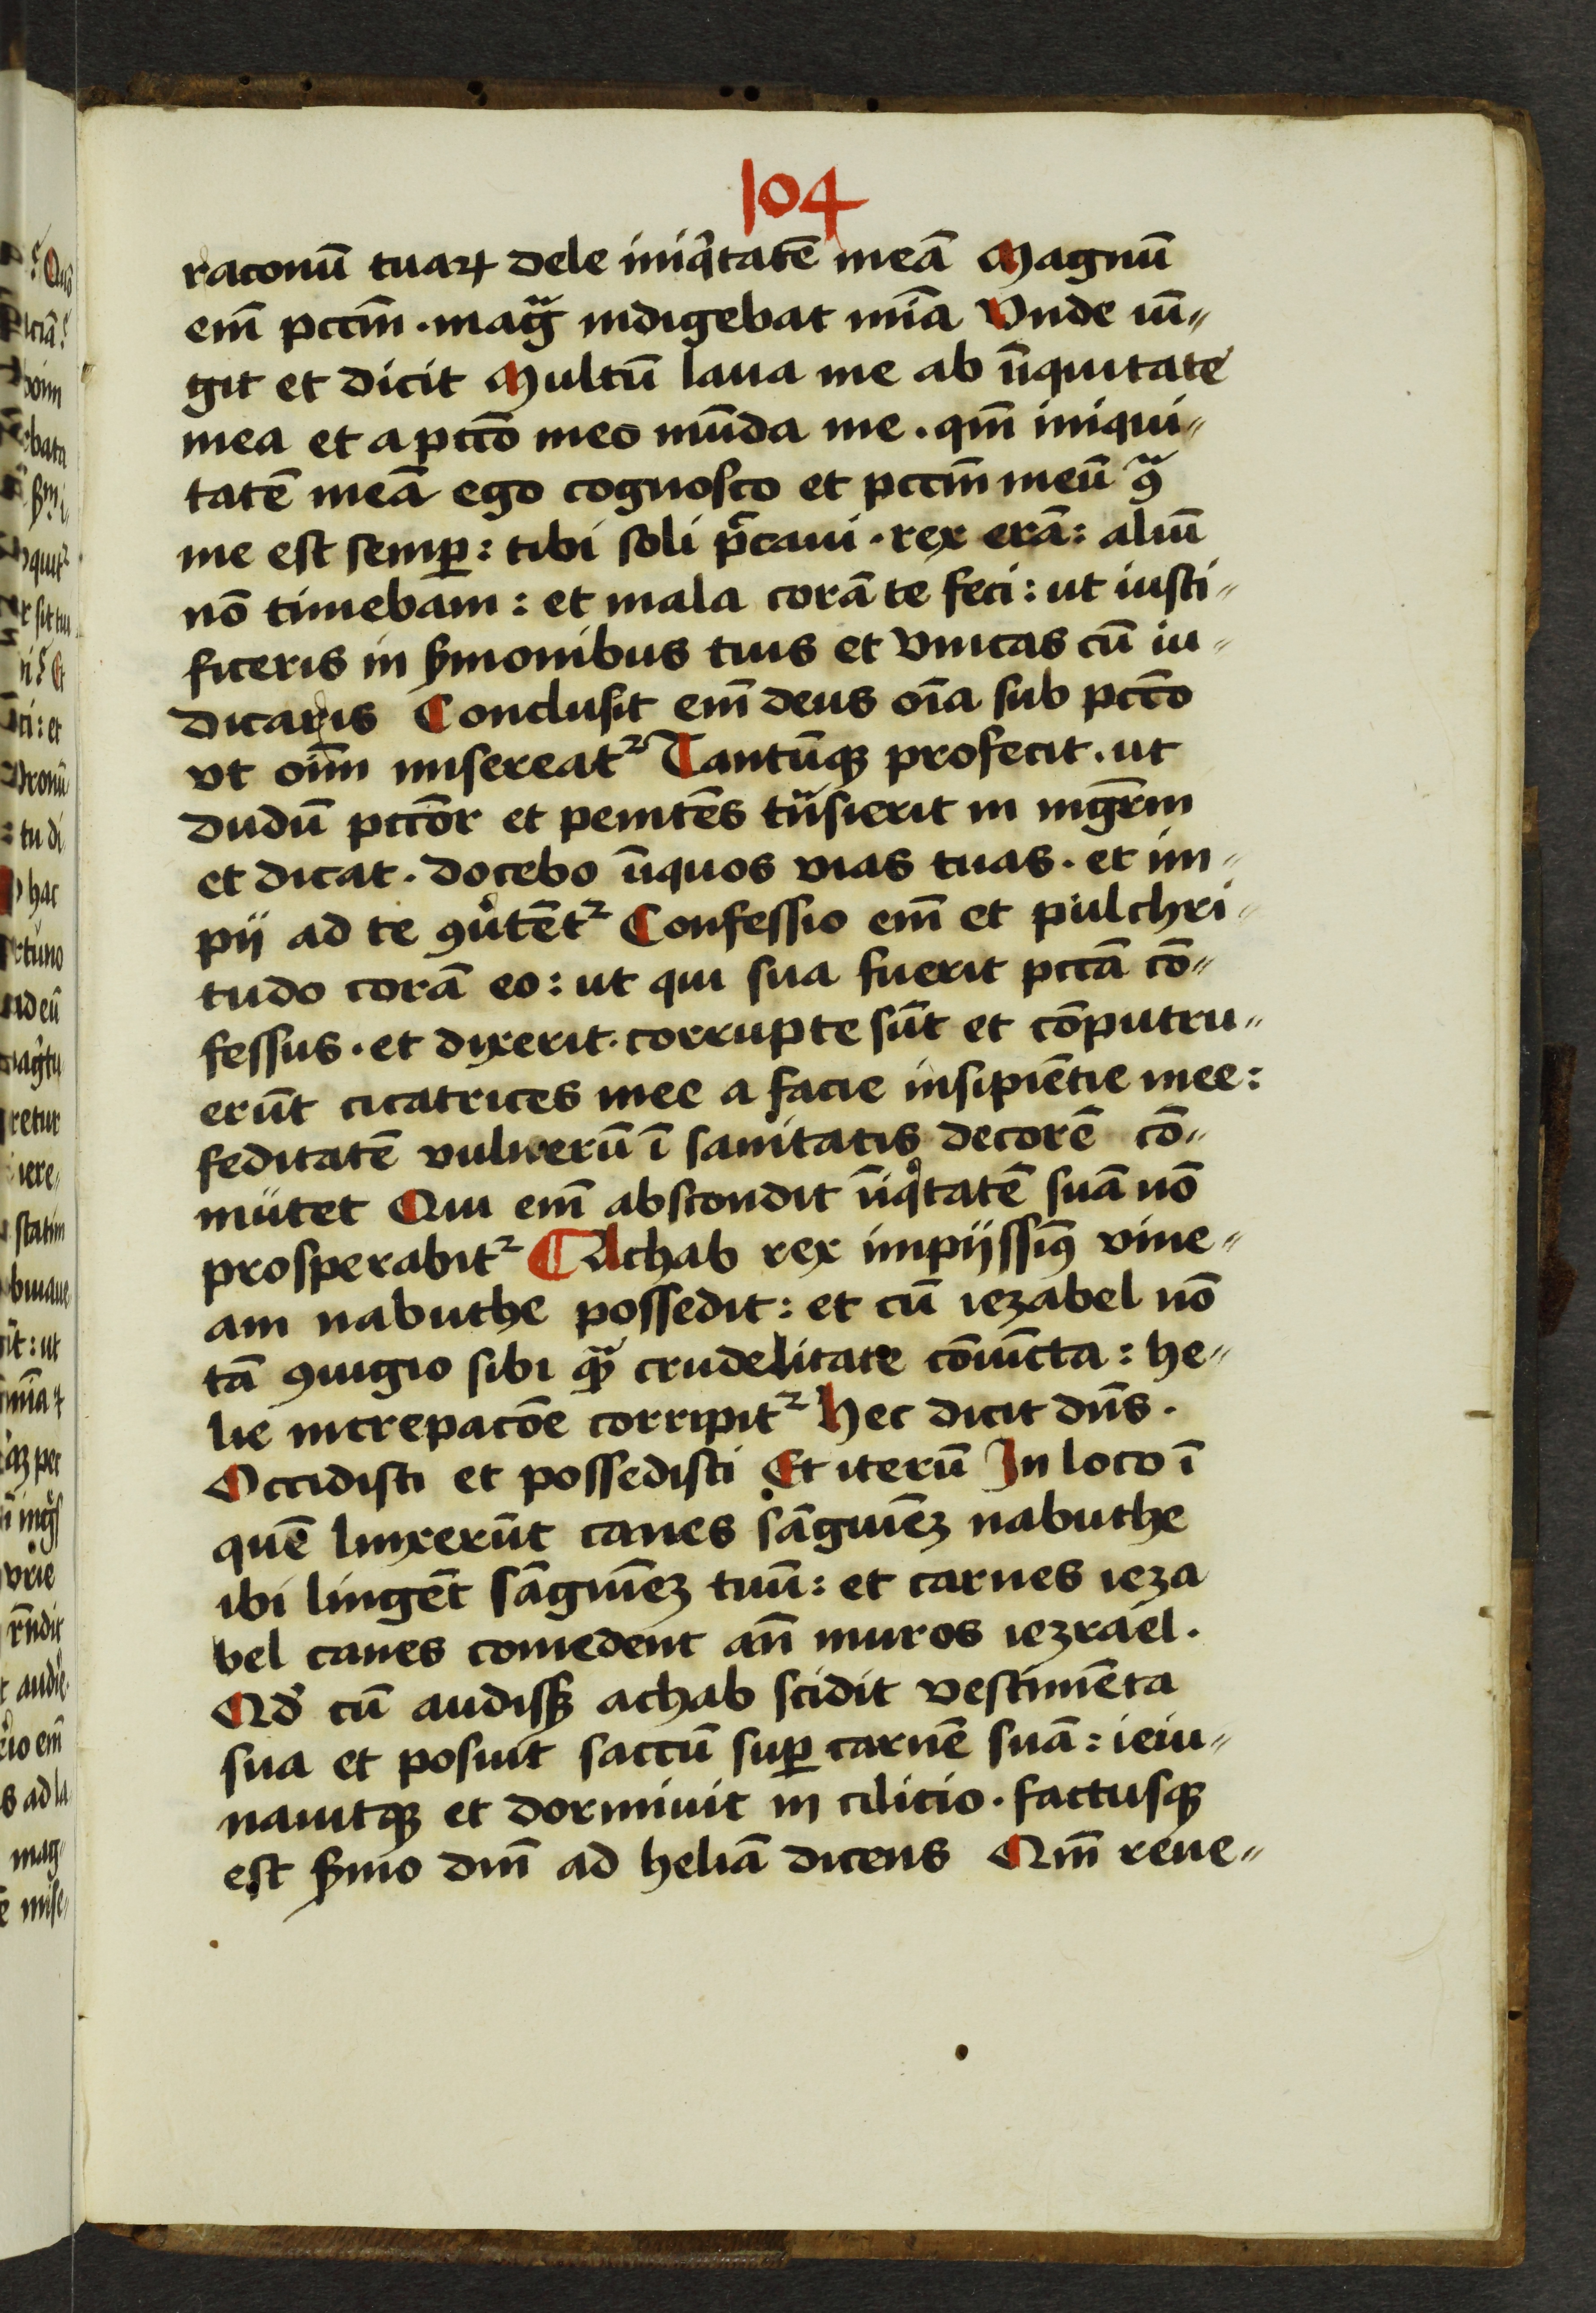 104
raconū tuaꝝ dele iniqͥtatē meā Magnū
em̄ pcc̄m · magᷓ indigebat mīa Vnde iū„
git et dicit Multū laua me ab īīquitate
mea et a pcc̄o meo mūda me . qm̄ iniqui„
tatē meā ego cognosco et pcc̄m meū ꝯᷓ
me est semꝑ : tibi soli p̄caui · rex erā : aliū
nō timebam : et mala corā te feci : ut iusti„
ficeris in ẜmonibus tuis et vīncas cū iu„
dicaris Conclusit em̄ deus oīa sub pcc̄o
vt oīm misereatᷣ Tantūqꝫ profecit . ut
dudū pcc̄or et penitēs tᷓnsierit in mgr̄m
et dicat . docebo īīquos vias tuas . et im„
pij ad te ꝯuͤtētᷣ Confessio em̄ et pulchri„
tudo corā eo : ut qui sua fuerit pcc̄a cō„
fessus . et dixerit . corrupte sūt et cōputru„
erūt cicatrices mee a facie insipiētie mee :
feditatē vulnerū ī sanitatis decorē cō„
mutet Qui em̄ abscondit īīqͥtatē suā nō
prosperabitᷣ ¶ Achab rex impijssiꝰ vine„
am nabuthe possedit : et cū iezabel nō
tā ꝯiugio sibi qᷓꝫ crudelitate cōiūcta : he„
lie increpacōe corripitᷣ Hec dicit dn̄s .
Occidisti et possedisti Et iterū In loco ī
quē linxerūt canes sāguīeꝫ nabuthe
ibi lingēt sāguīeꝫ tuū : et carnes ieza
bel canes comedent an̄ muros iezrael .
Qd̛ cū audissꝫ achab scidit vestimēta
sua et posuit saccū suꝑ carnē suā : ieiu„
nauitqꝫ et dormiuit in cilicio . factusqꝫ
est ẜmo dn̄i ad heliā dicens Qm̄ reue„